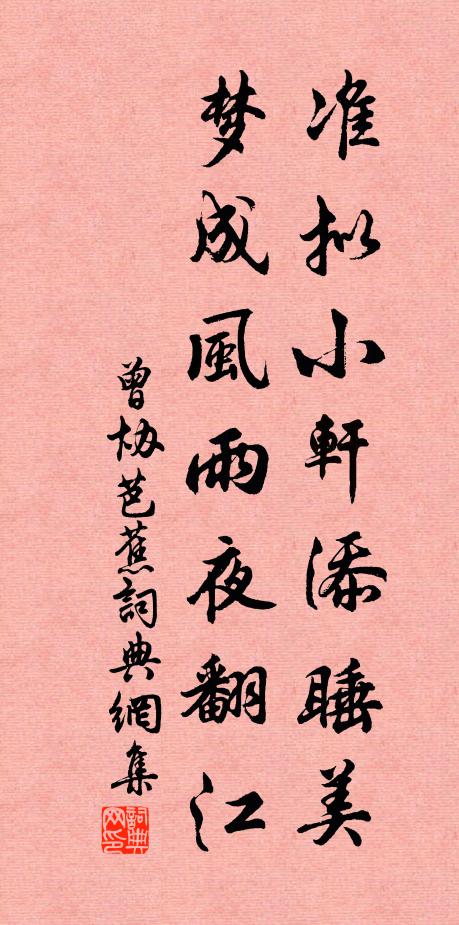 准拟小軒添睡美
梦成風雨夜翻江
曾协芭蕉詞典網集
詞典网印